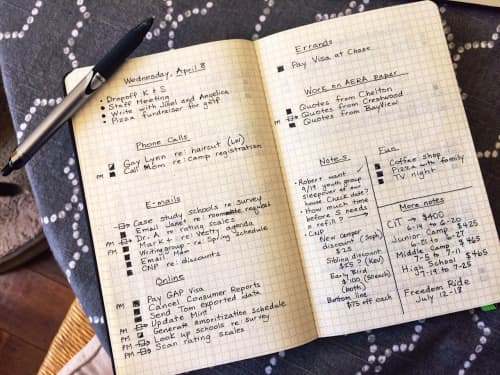 Wednesday, April 8
Dropoff K + S
Staff Meeting
Write with Jidel and Angelica
Pizza fundraiser for golf
Phone Calls
Gay Lynn re: haircut (LW)
PM Call Mom re: camp registration
E-mails
Case study schools re: survey
PM Email Janet re: roommate request
Dr. A re: rating scales
PM Mark + re: Vestry agenda
Writing group re: Spring schedule
Email Mom
ONP re: discounts
Online
PM Pay GAP Visa
Cancel Consumer Reports
Send Tom exported data
PM Update Mint
PM Generate amortization schedule
PM Look up schools re: survey
PM Scan rating scales
Errands
Pay Visa at Chase
Work on AERA paper
Quotes from Chelton
PM Quotes from Crestwood
Quotes from Bayview
Notes
Robert want
9/19 youth group
sleepover at our
house. Check date?
How much time
before S needs
a refill?
CNP
New camper
discount (Soph)
$25
Sibling discount
$55? (Kev)
Early Bird
$100 (50 each)
(both)
Bottom line
$75 off each
Fun
Coffee shop
Pizza with family
TV night
More notes
CIT → $400
6-14 to 6-20
Junior Camp $425
6-21 to 6-27
Middle Camp $465
7-5 to 7-11
High School $465
7-19 to 7-25
Freedom Ride
July 12-18